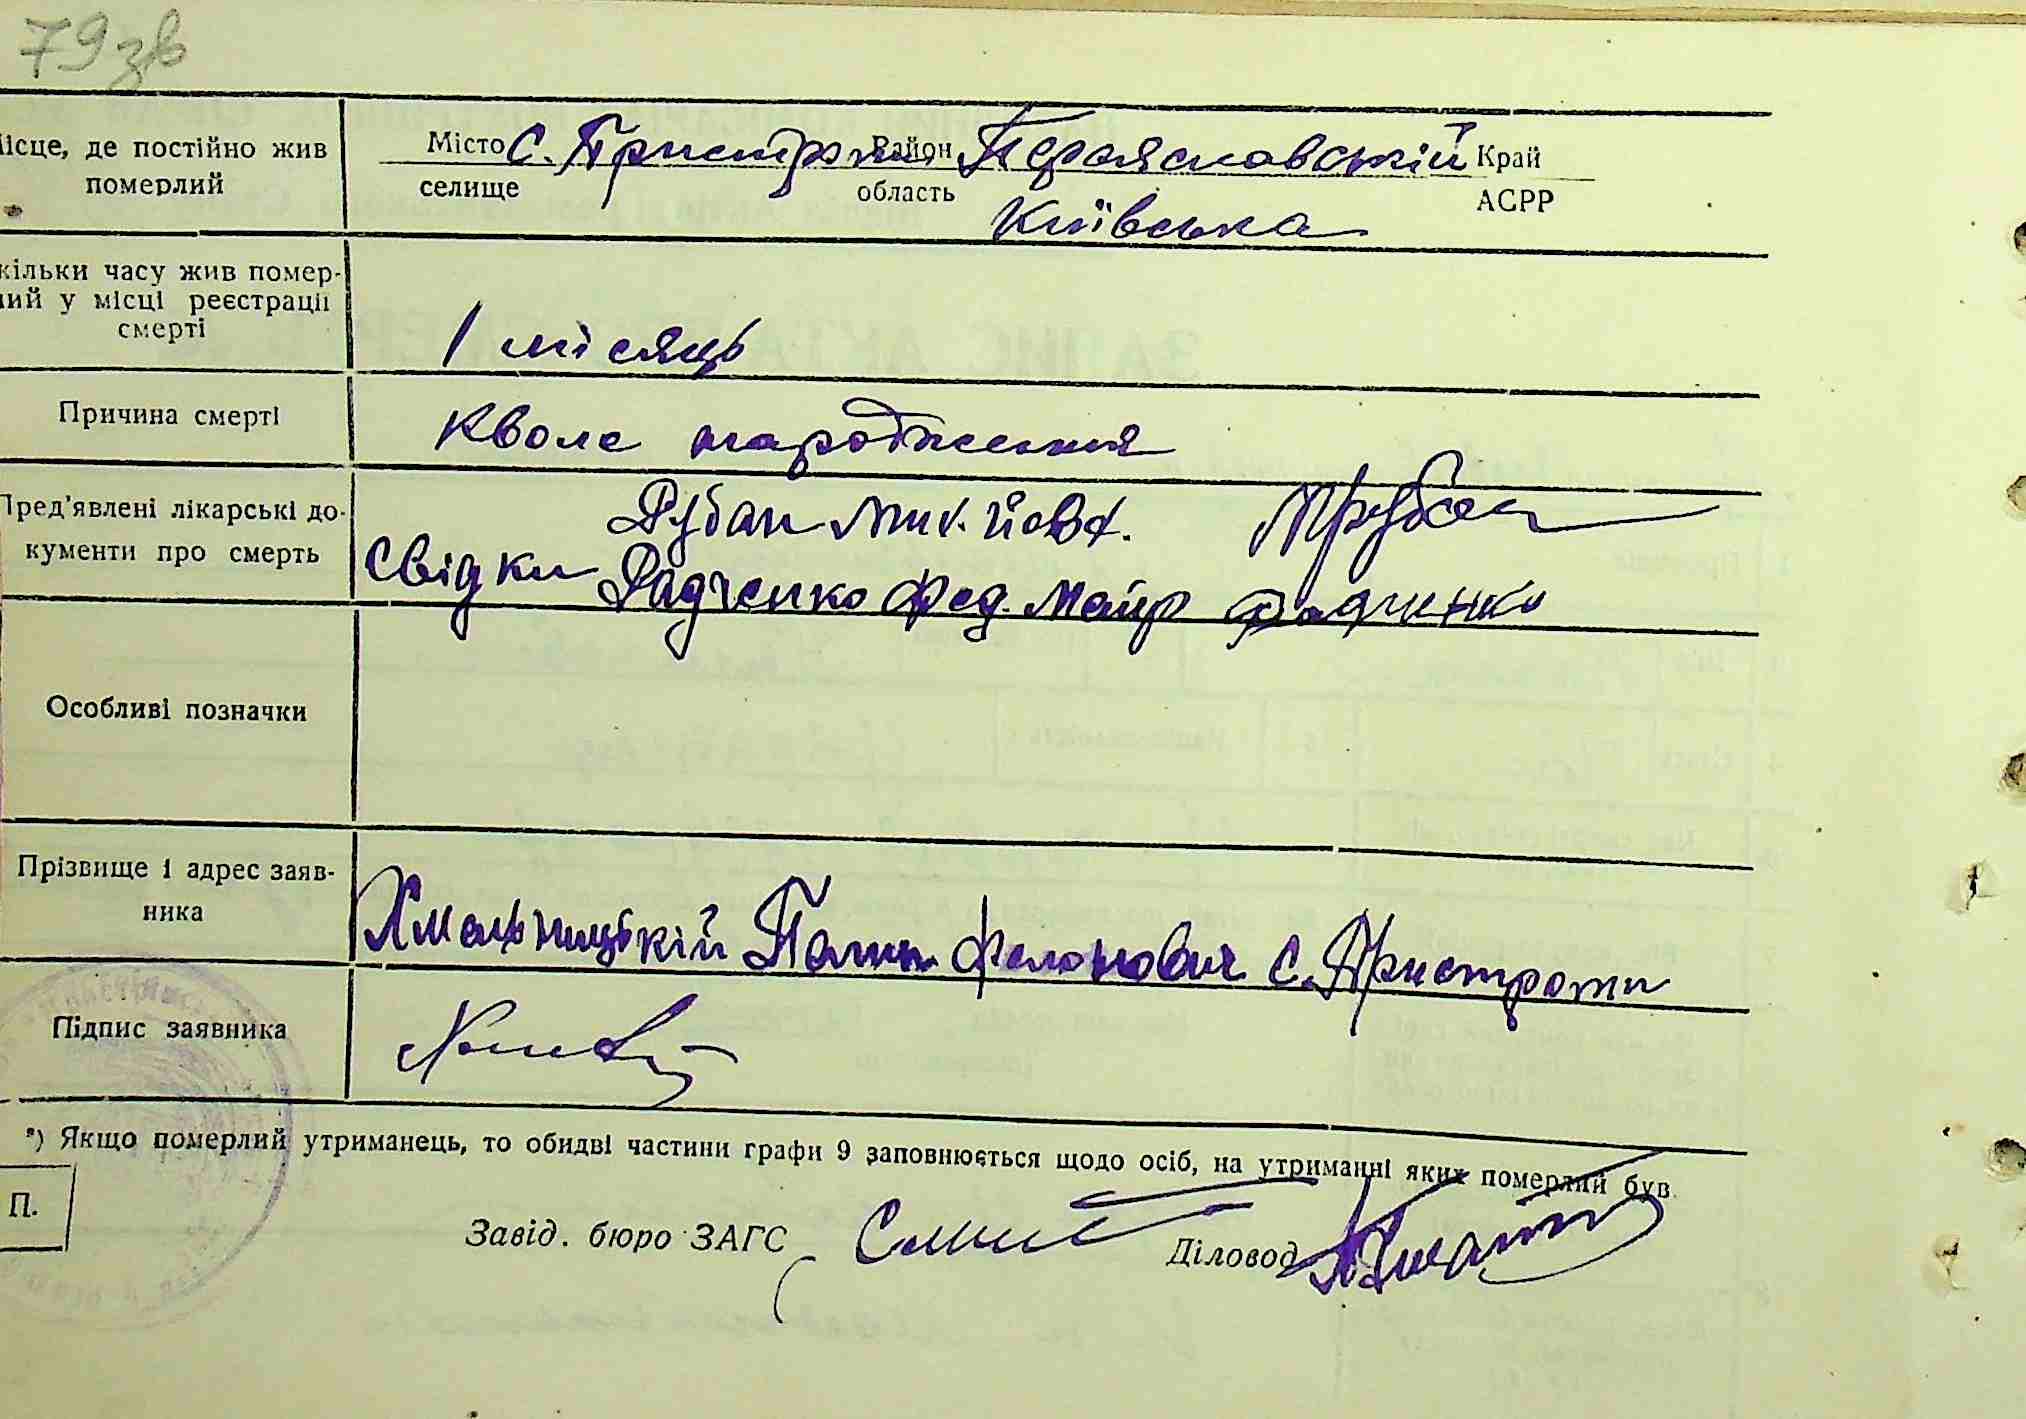 79зв
Місце, де постійно жив
померлий
Місто с. Пристроми Район Переяславській Край
селище область АСРР
Київська
кільки часу жив помер-
лий у місці реєстрації
смерті
1 місяць
Причина смерті
Кволе народження
Пред'явлені лікарські до-
кументи про смерть
Рубан Мик. Йовх.
Свідки Радченко Фед. Майр Радченко
Особливі позначки
Прізвище і адрес заяв-
ника
Хмельницькій Фелонович с. Пристроми
Підпис заявника
*) Якщо померлий утриманець, то обидві частини графи 9 заповнюється щодо осіб, на утриманні яких померлий був.
П.
Завід. бюро ЗАГС
Діловод